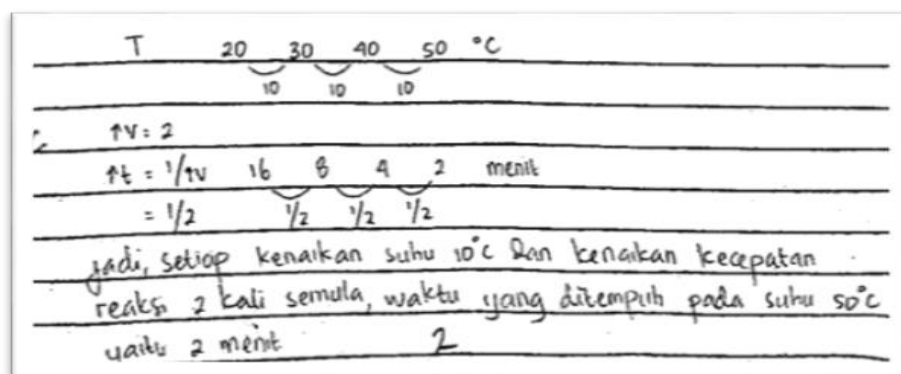 T 20 30 40 50 °C
10 10 10
↑V = 2
↑t = 1/↑V 16 8 4 2 menit
= 1/2 1/2 1/2 1/2
jadi, setiap kenaikan suhu 10°C dan kenaikan kecepatan
reaksi 2 kali semula, waktu yang ditempuh pada suhu 50°C
yaitu 2 menit 2